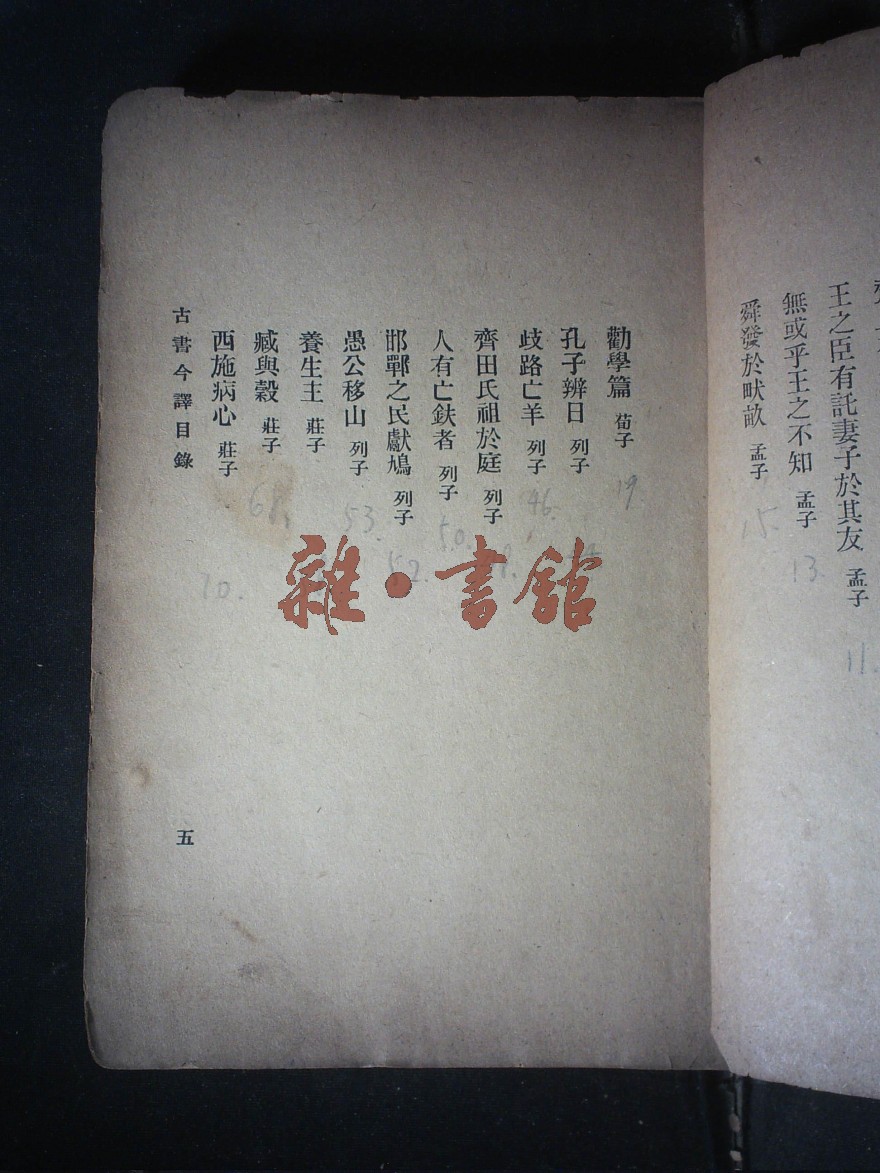 王之臣有託妻子於其友 孟子
11.
無或乎王之不知 孟子
13.
舜發於畎畝 孟子
15.
勸學篇 荀子
19
孔子辨日 列子
歧路亡羊 列子
46.
齊田氏祖於庭 列子
人有亡鈇者 列子
50.
邯鄲之民獻鳩 列子
52.
愚公移山 列子
53.
養生主 莊子
臧與穀 莊子
68.
西施病心 莊子
70.
古書今譯目錄
五
雜·書館